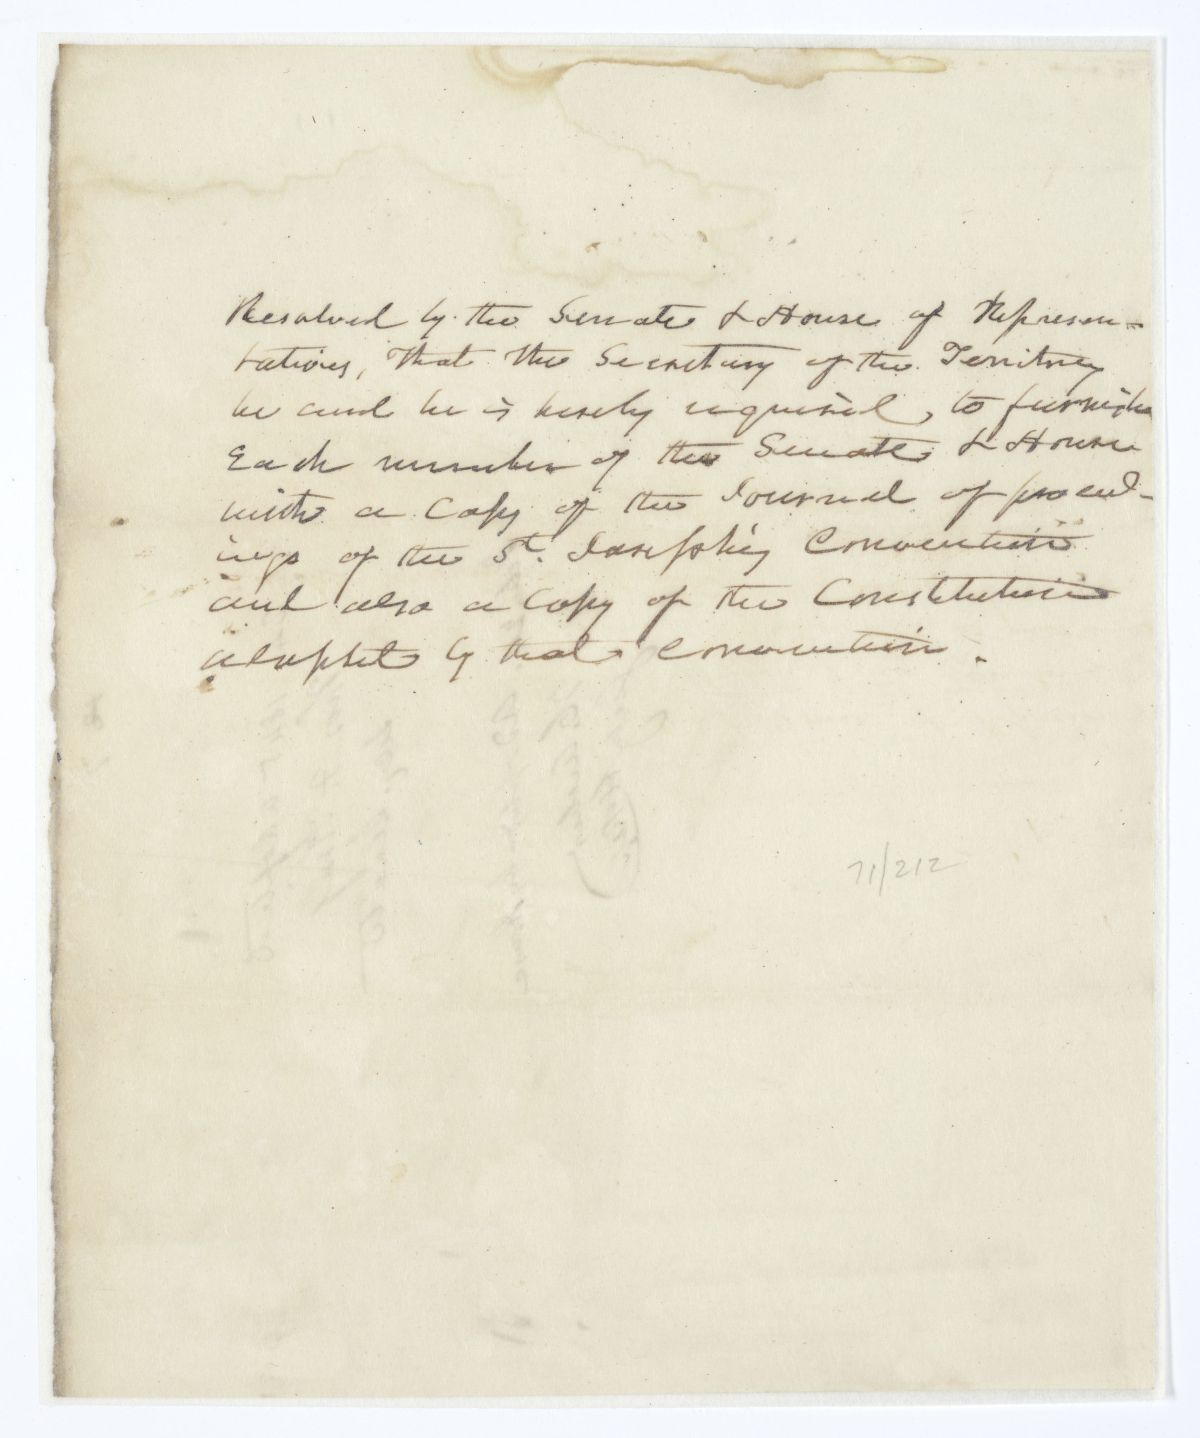 Resolved by the Senate & House of Represen=
tatives, That the Secretary of the Territory
be and he is hereby required, to furnish
Each member of the Senate & House
with a Copy of the Journal of proceed-
ings of the St. Josephs Convention
and also a Copy of the Constitution
adopted by that Convention.
71/212